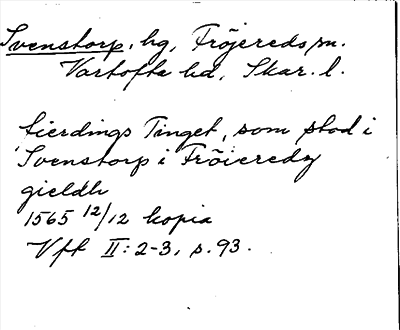 Svenstorp, hg, Fröjereds sn.
Vartofta hd, Skar. l.
tierdings Tinget, som stod i
Svenstorp i Fröieredz
gieldh
1565 12/12 kopia
Vff II: 2-3, s. 93.